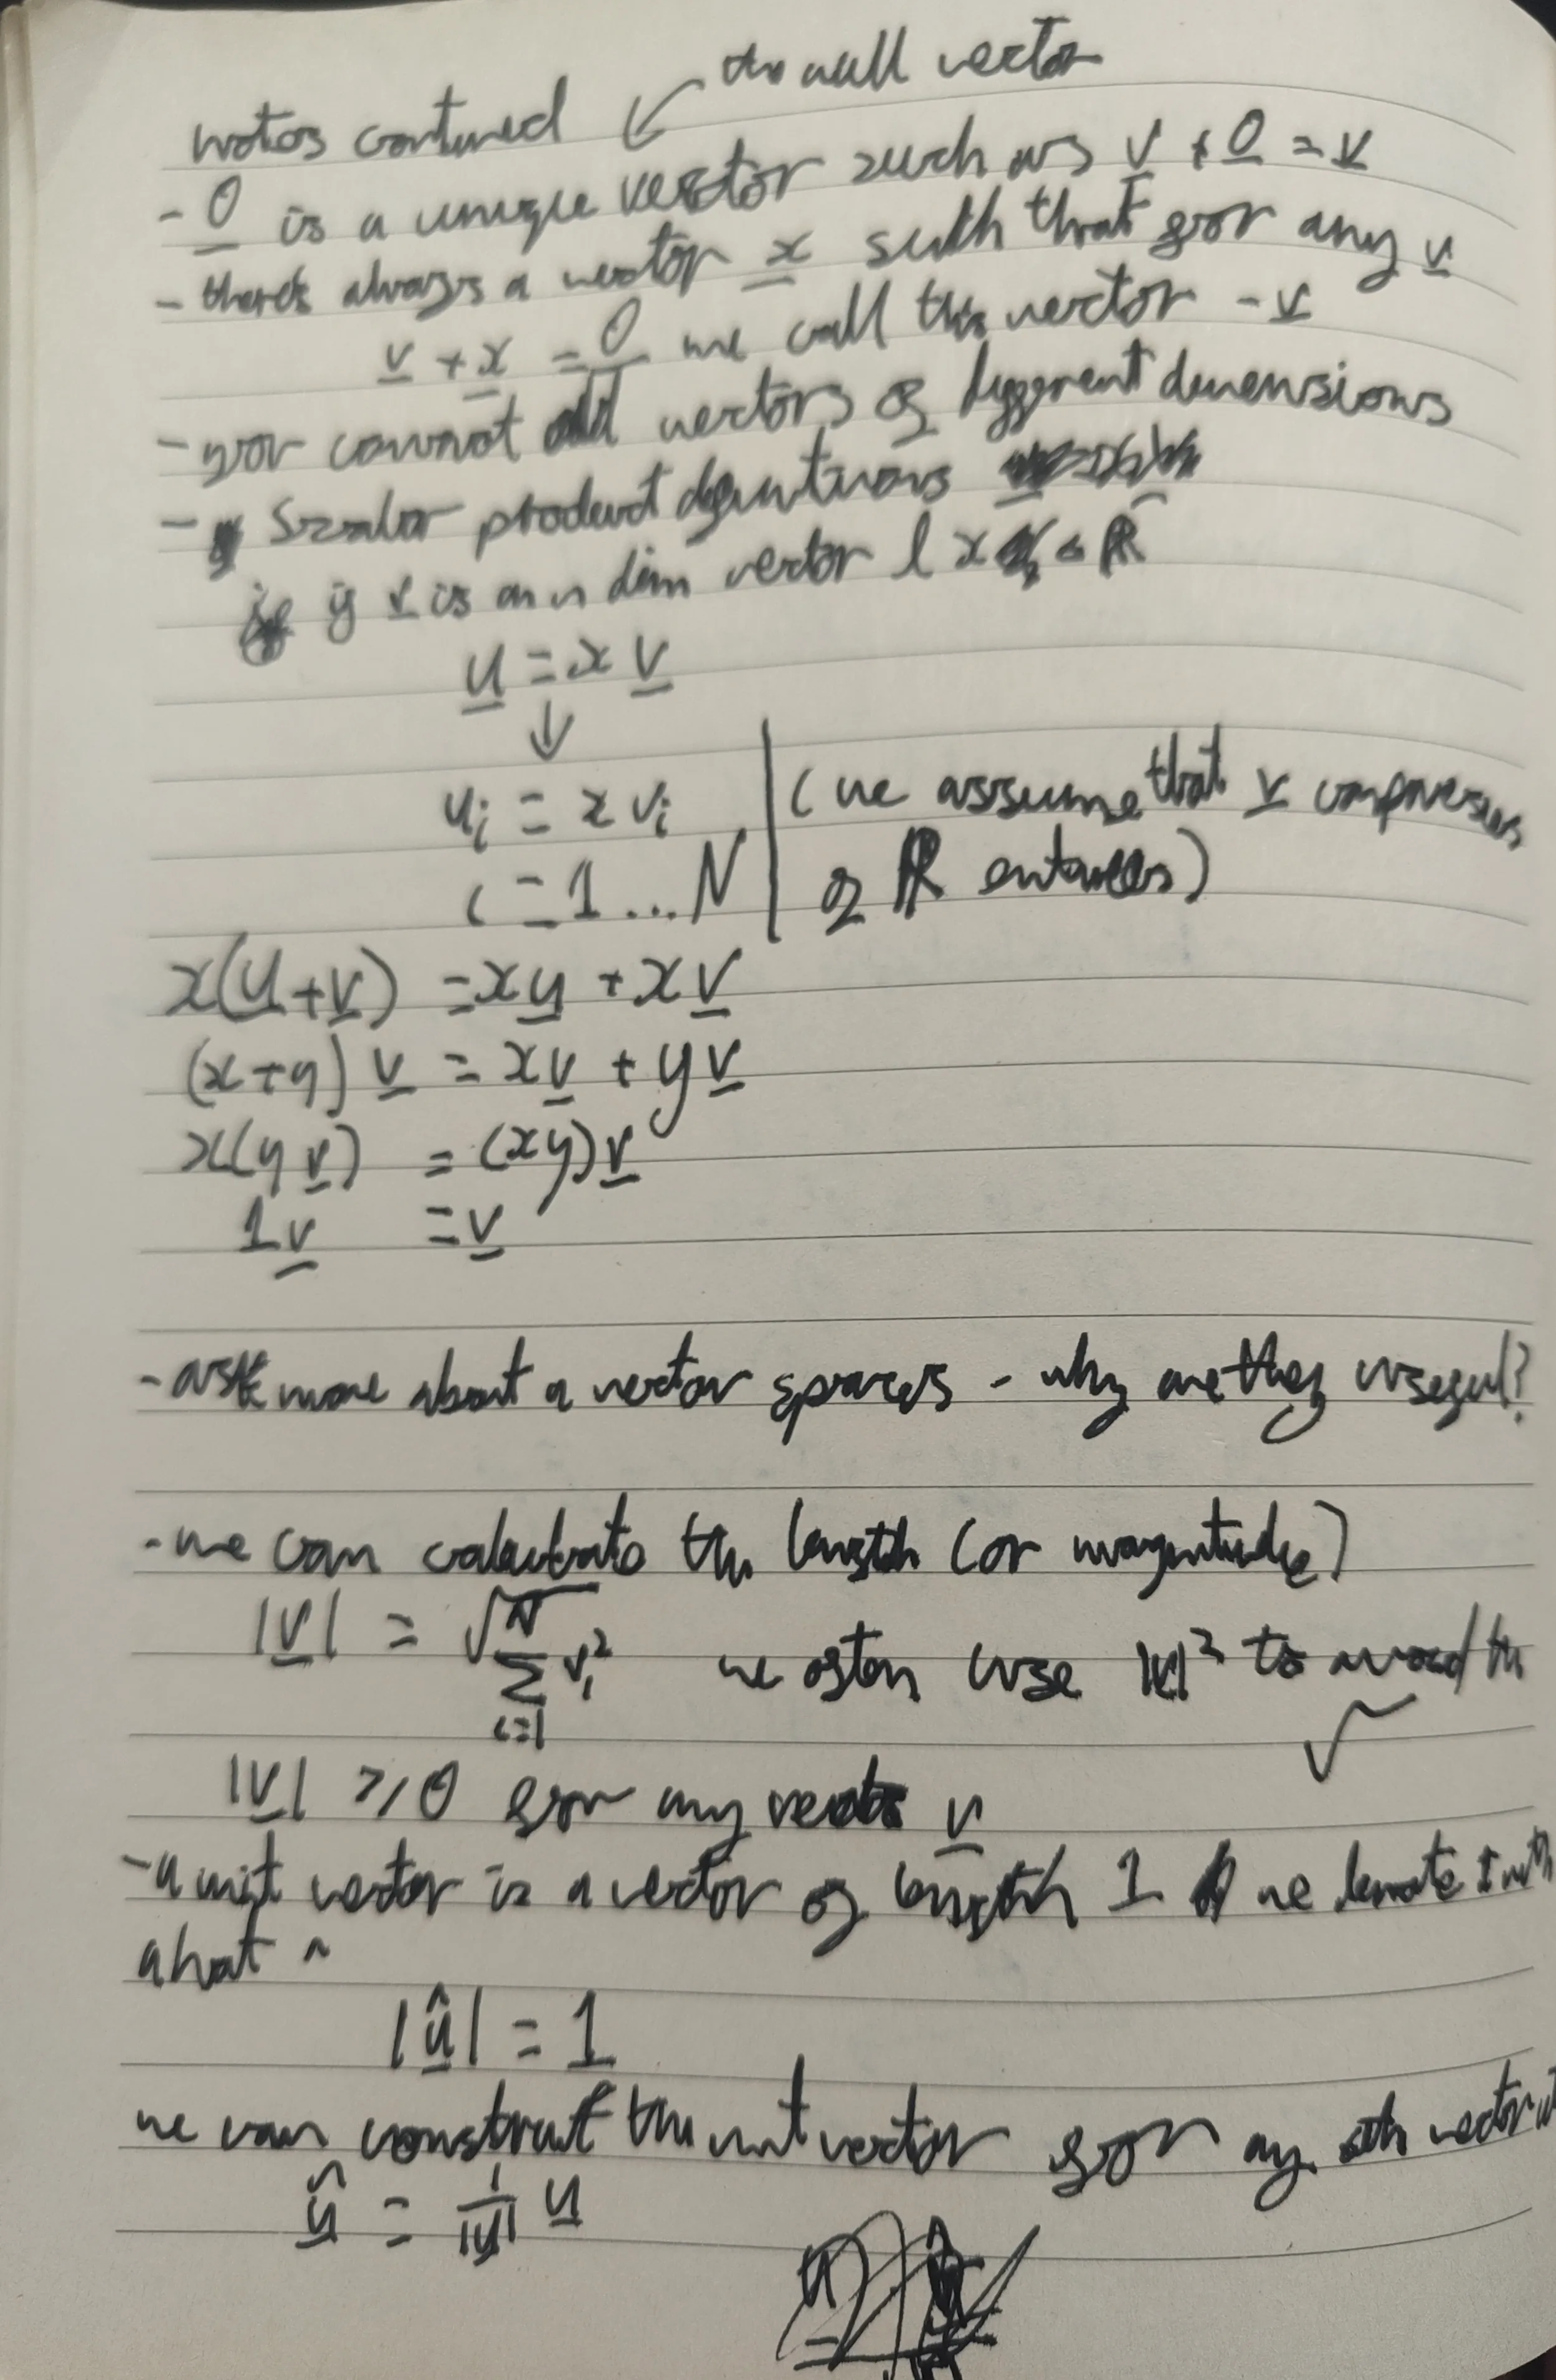 the null vector
notes contuned
- 0 is a unique vector such as v + 0 = v
- there's always a vector x such that for any v
v + x = 0 we call this vector - v
- you cannot add vectors of different dimensions
- Scalar product definitions
if v is an n dim vector & x ∈ ℝ
u = x v
↓
u_i = x v_i | (we assume that v
i = 1 ... N | of ℝ entries)
x(u + v) = x u + x v
(x + y) v = x v + y v
x(y v) = (xy) v
1 v = v
- ask more about a vector spaces - why are they useful?
- we can calculate the length (or magnitude)
|v| = √ N Σ i=1 v_i² we often use |v|² to avoid the √
|v| ≥ 0 for any vector v
- a unit vector is a vector of length 1 we denote it with
a hat ^
|û| = 1
we can construct the unit vector for any vector
û = 1/|u| u